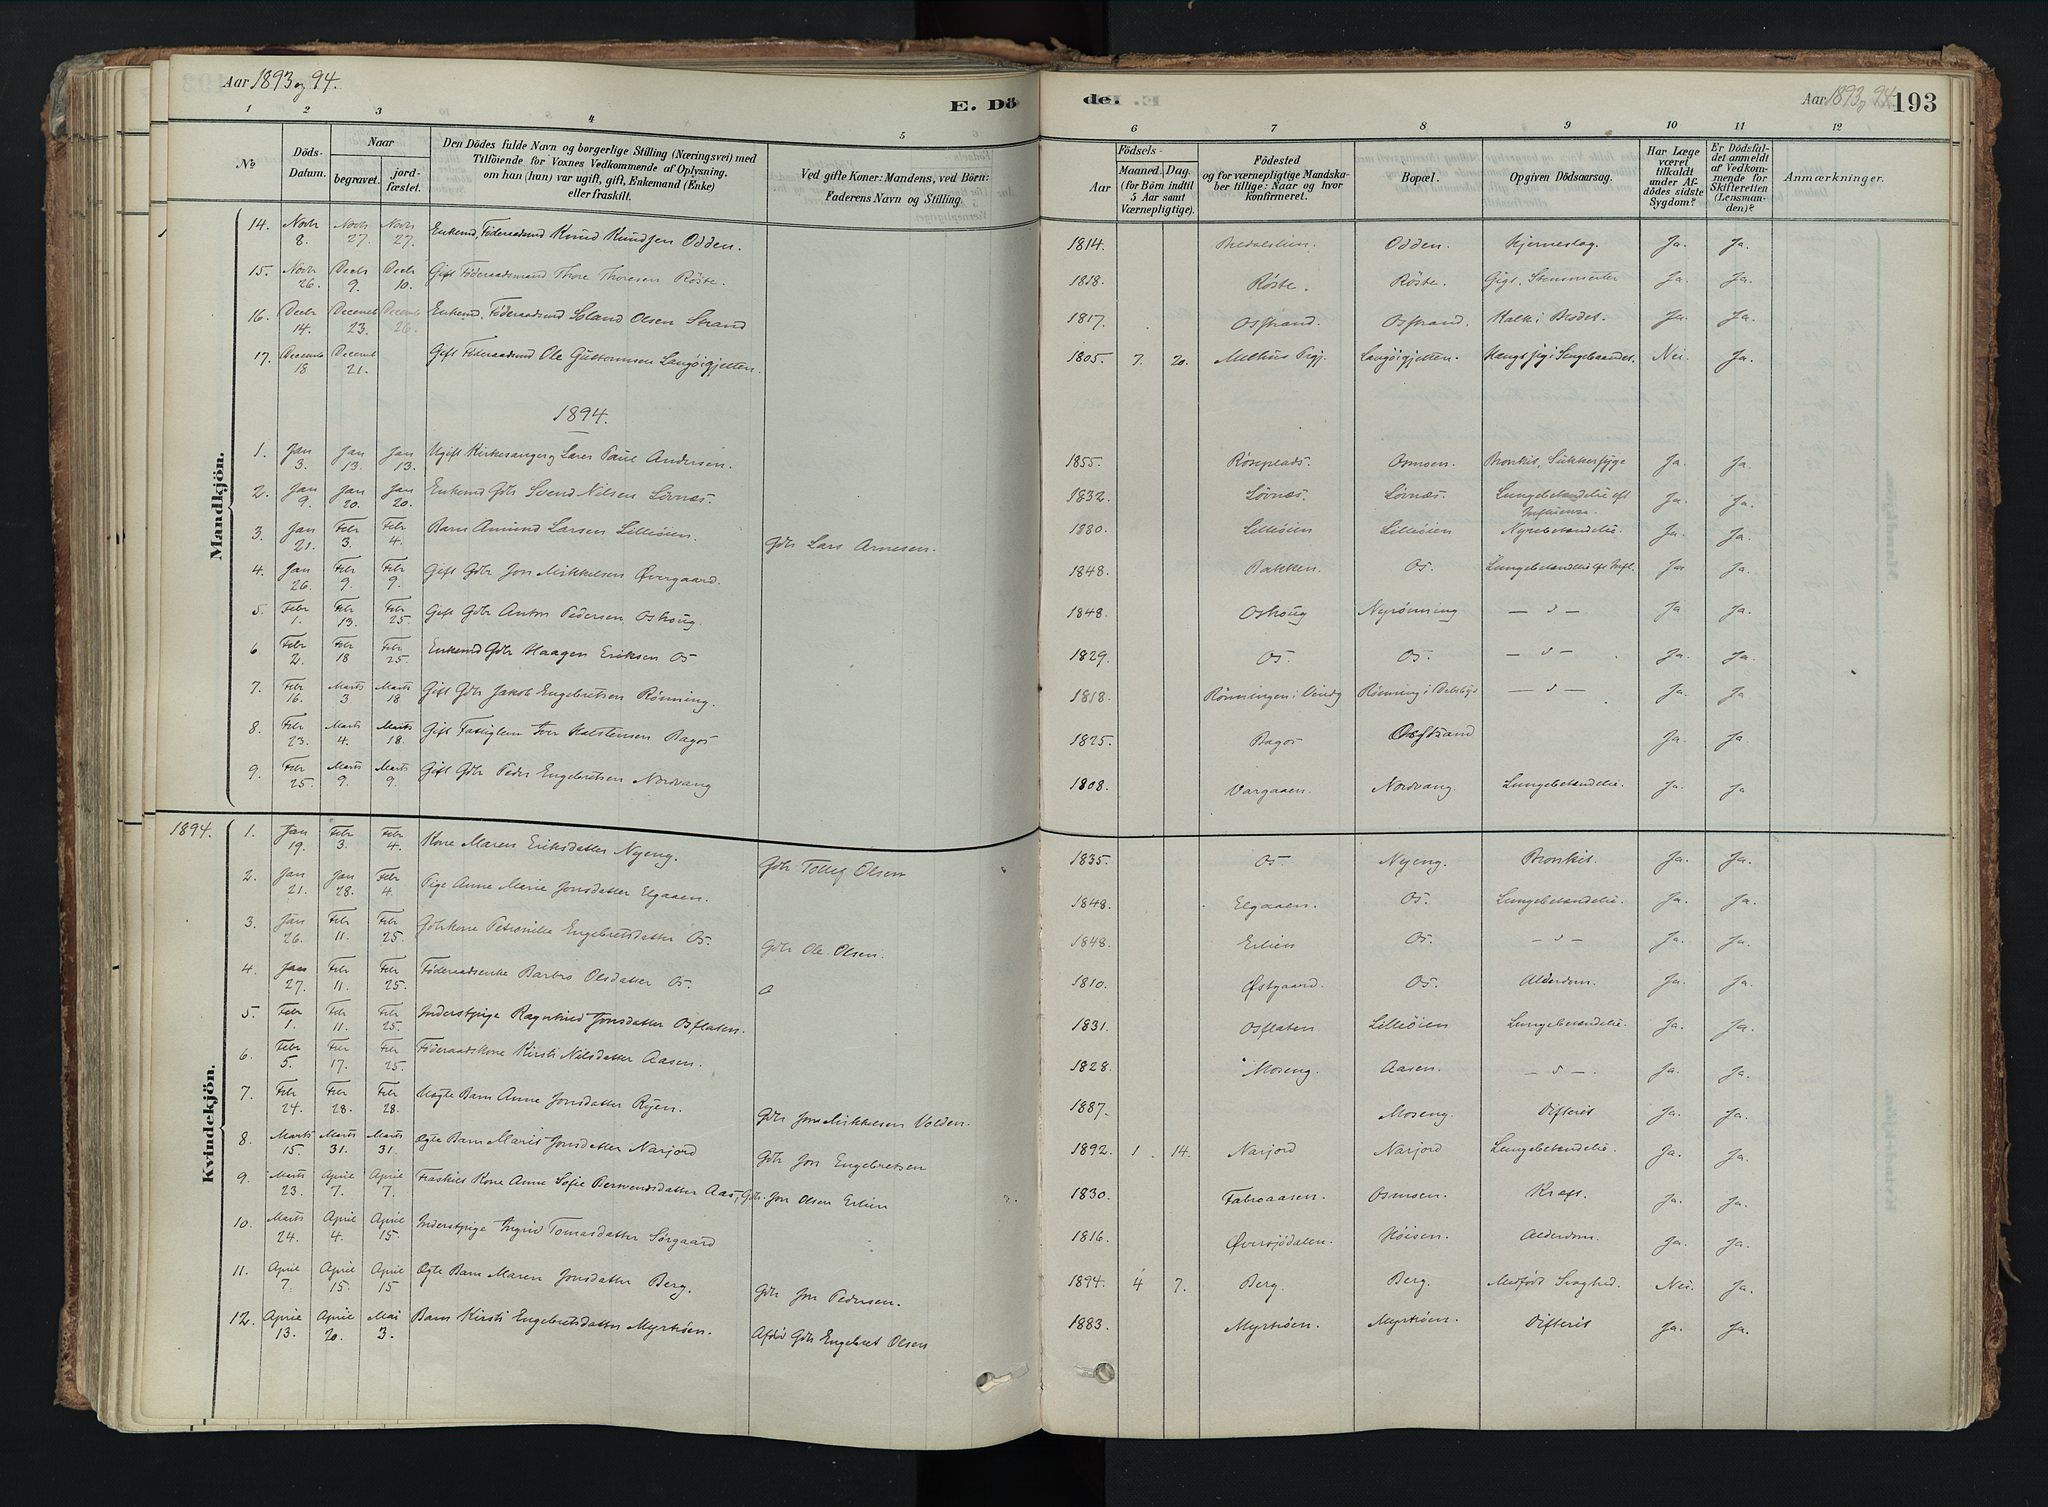 Aar 1893 og 94.
E. Dö
de.
Aar 1893 og 94
193
1 2 3 4 5 6 7 8 9 10 11 12
No
Döds-Datum.
Naar
begravet.
jord-fæstet.
Den Dödes fulde Navn og borgerlige Stilling (Næringsvei) med
Tilföiende for Voxnes Vedkommende af Oplysning,
om han (hun) var ugift, gift, Enkemand (Enke)
eller fraskilt.
Ved gifte Koner: Mandens, ved Börn:
Faderens Navn og Stilling.
Födsels-
Aar
Maaned. Dag.
(for Börn indtil
5 Aar samt
Værnepligtige).
Födested
og for værnepligtige Mandska-
ber tillige: Naar og hvor
konfirmeret.
Bopæl.
Opgiven Dödsaarsag.
Har Læge
været
tilkaldt
under Af-
dödes sidste
Sygdom?
Er Dödsfal-
det anmeldt
af Vedkom-
mende for
Skifteretten
(Lensman-
den)?
Anmærkninger.
Mandkjön.
14. Novbr 8. Novbr 27. Novbr 27. Enkemd, Føderaadsmd Knud Knudsen Odden. 1814. Odden. Hjerneslag. Ja. Ja.
15. Novbr 26. Decbr 9. Decbr 10. Gift Føderaadsmand Thore Thoresen Røste. 1818. Røste. Røste. Gigt, Stensmerter Ja. Ja.
16. Decbr 14. Decemb 23. Decemb 26. Enkemd. Føderaadsmd Esland Olsen Strand 1817. Osstrand. Osstrand. Kalk i Blodet. Ja. Ja.
17. Decemb 18 Decemb 21. Gift Føderaadsmd Ole Guttormsen Langøigjetten. 1805. 7. 20. Melhus Prgj. Langøigjetten. Hængt sig i Sengebaandet. Nei. Ja.
1894.
1. Jan 3. Jan 13. Jan 13. Ugift Kirkesanger Lars Paul Andersen. 1855. Røseplads. Osmoen. Bronkit, Sukkersyge Ja. Ja.
2. Jan 9. Jan 20. Jan 20. Enkemd Gbr Svend Nilsen Løvnæs. 1832. Løvnæs. Løvnæs. Lungebetændelse eft Influensa. Ja. Ja.
3. Jan 21. Febr 3. Febr 4. Barn Amund Larsen Lilleøien. Gbr Lars Arnesen. 1880. Lilleøien Lilleøien Nyrebetændelse. Ja. Ja.
4. Jan 26. Febr 9. Febr 9. Gift Gbr Jon Mikkelsen Øvergaard. 1848. Bakken. Os. Lungebetændelse eft Infl. Ja Ja.
5. Febr 1. Febr 13. Febr 25. Gift Gbr Anton Pedersen Oshoug. 1848. Oshoug Nyrønning — " — Ja Ja.
6 Febr 2. Febr 18 Febr 25. Enkemd Gbr Haagen Eriksen Os 1829. Os. Os. — " — Ja. Ja.
7. Febr 16. Marts 3 Marts 18 Gift Gbr Jakob Engebretsen Rønning. 1818. Rønningen i Rønning i — " — Ja. Ja
8. Febr 23. Marts 4. Marts 18. Gift Fattiglem Iver Halstensen Bagos 1825. Bagos Osstrand Ja. Ja
9. Febr 25. Marts 9. Marts 9. Gift Gbr Peder Engebretsen Nordvang 1808. Vargaaen. Nordvang. Lungebetændelse. Ja. Ja
Kvindekjön.
1894. 1. Jan 19. Febr 3. Febr 4. Kone Maren Eriksdatter Nyeng. Gbr Tollef Olsen 1835. Os Nyeng. Bronkit. Ja. Ja.
2. Jan 21. Jan 28. Febr 4. Pige Anne Marie Jonsdatter Elgaaen. 1848. Elgaaen. Os. Lungebetændelse. Ja. Ja.
3. Jan 26. Febr 11. Febr 25. Gbrkone Petronille Engebretsdatter Os. Gbr Ole Olsen. 1848. Erlien Os. — " — Ja. Ja.
4. Jan 27. Febr 11. Febr 25. Føderaadsenke Barbro Olsdatter Os. 1810. Østgaard. Os. Alderdom. Ja. Ja.
5. Febr 1. Febr 11. Febr 25. Inderstpige Ragnhild Jonsdatter Osflaten. 1831. Osflaten Lilleøien Lungebetændelse. Ja. Ja.
6. Febr 5. Febr 17. Febr 25. Føderaadskone Kirsti Nilsdatter Aasen. 1828. Moseng. Aasen. — " — Ja. Ja.
7. Febr 24. Febr 28. Febr 28. Uægte Barn Anne Jonsdatter Ryen. Gbr Jon Mikkelsen Volden. 1887. Moseng. Difterit Ja. Ja.
8. Marts 15. Marts 31. Marts 31. Ægte Barn Marit Jonsdatter Narjord Gbr Jon Engebretsen 1892. 1. 14. Narjord Narjord Lungebetændelse. Ja. Ja.
9. Marts 23. April 7. April 7. Fraskilt Kone Anne Sofie Berventsdatter Aas, Gbr. Jon Olsen Erlien 1830. Fabroaasen. Osmoen. Kræft. Ja. Ja.
10. Marts 24. April 4. April 15. Inderstpige Ingrid Tomasdatter Sørgaard 1816. Øversjødalen. Høisen. Alderdom. Ja. Ja.
11. April 7. April 15. April 15 Ægte Barn Maren Jonsdatter Berg. Gbr Jon Pedersen. 1894. 4 7. Berg. Berg. Medfødt Svaghed. Nei. Ja.
12. April 13. April 20. Mai 3. Barn Kirsti Engebretsdatter Myrmoen. Afdød Gbr Engebret Olsen 1883. Myrmoen. Myrmoen. Difterit Ja. Ja.